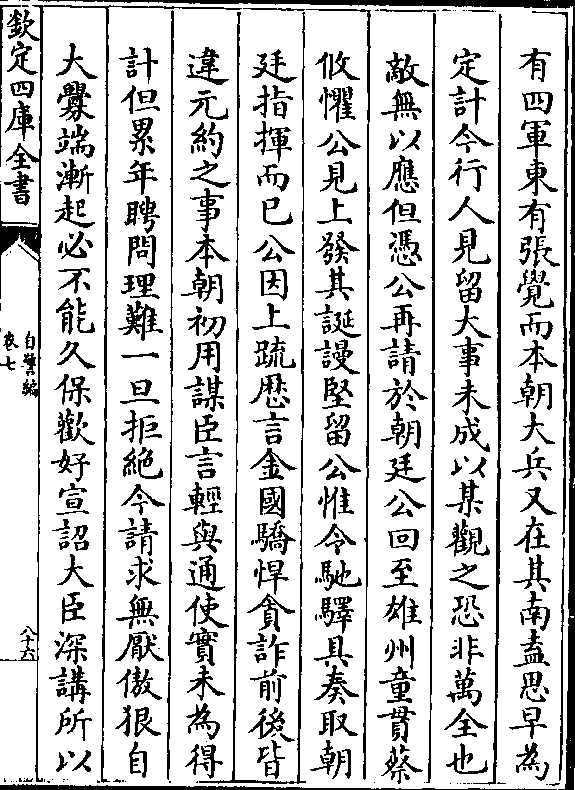 有四軍東有張覺而本朝大兵又在其南盍思早為
定計今行人見留大事未成以某觀之恐非萬全也
敵無以應但憑公再請於朝廷公回至雄州童貫蔡
攸懼公見上發其誕謾堅留公惟令馳驛具奏取朝
廷指揮而已公因上疏歴言金國驕悍貪詐前後皆
違元約之事本朝初用謀臣言輕與通使實未為得
計但累年聘問理難一旦拒絶今請求無厭傲狠自
大釁端漸起必不能久保歡好宣詔大臣深講所以
欽定四庫全書
自警編
卷七
八十六